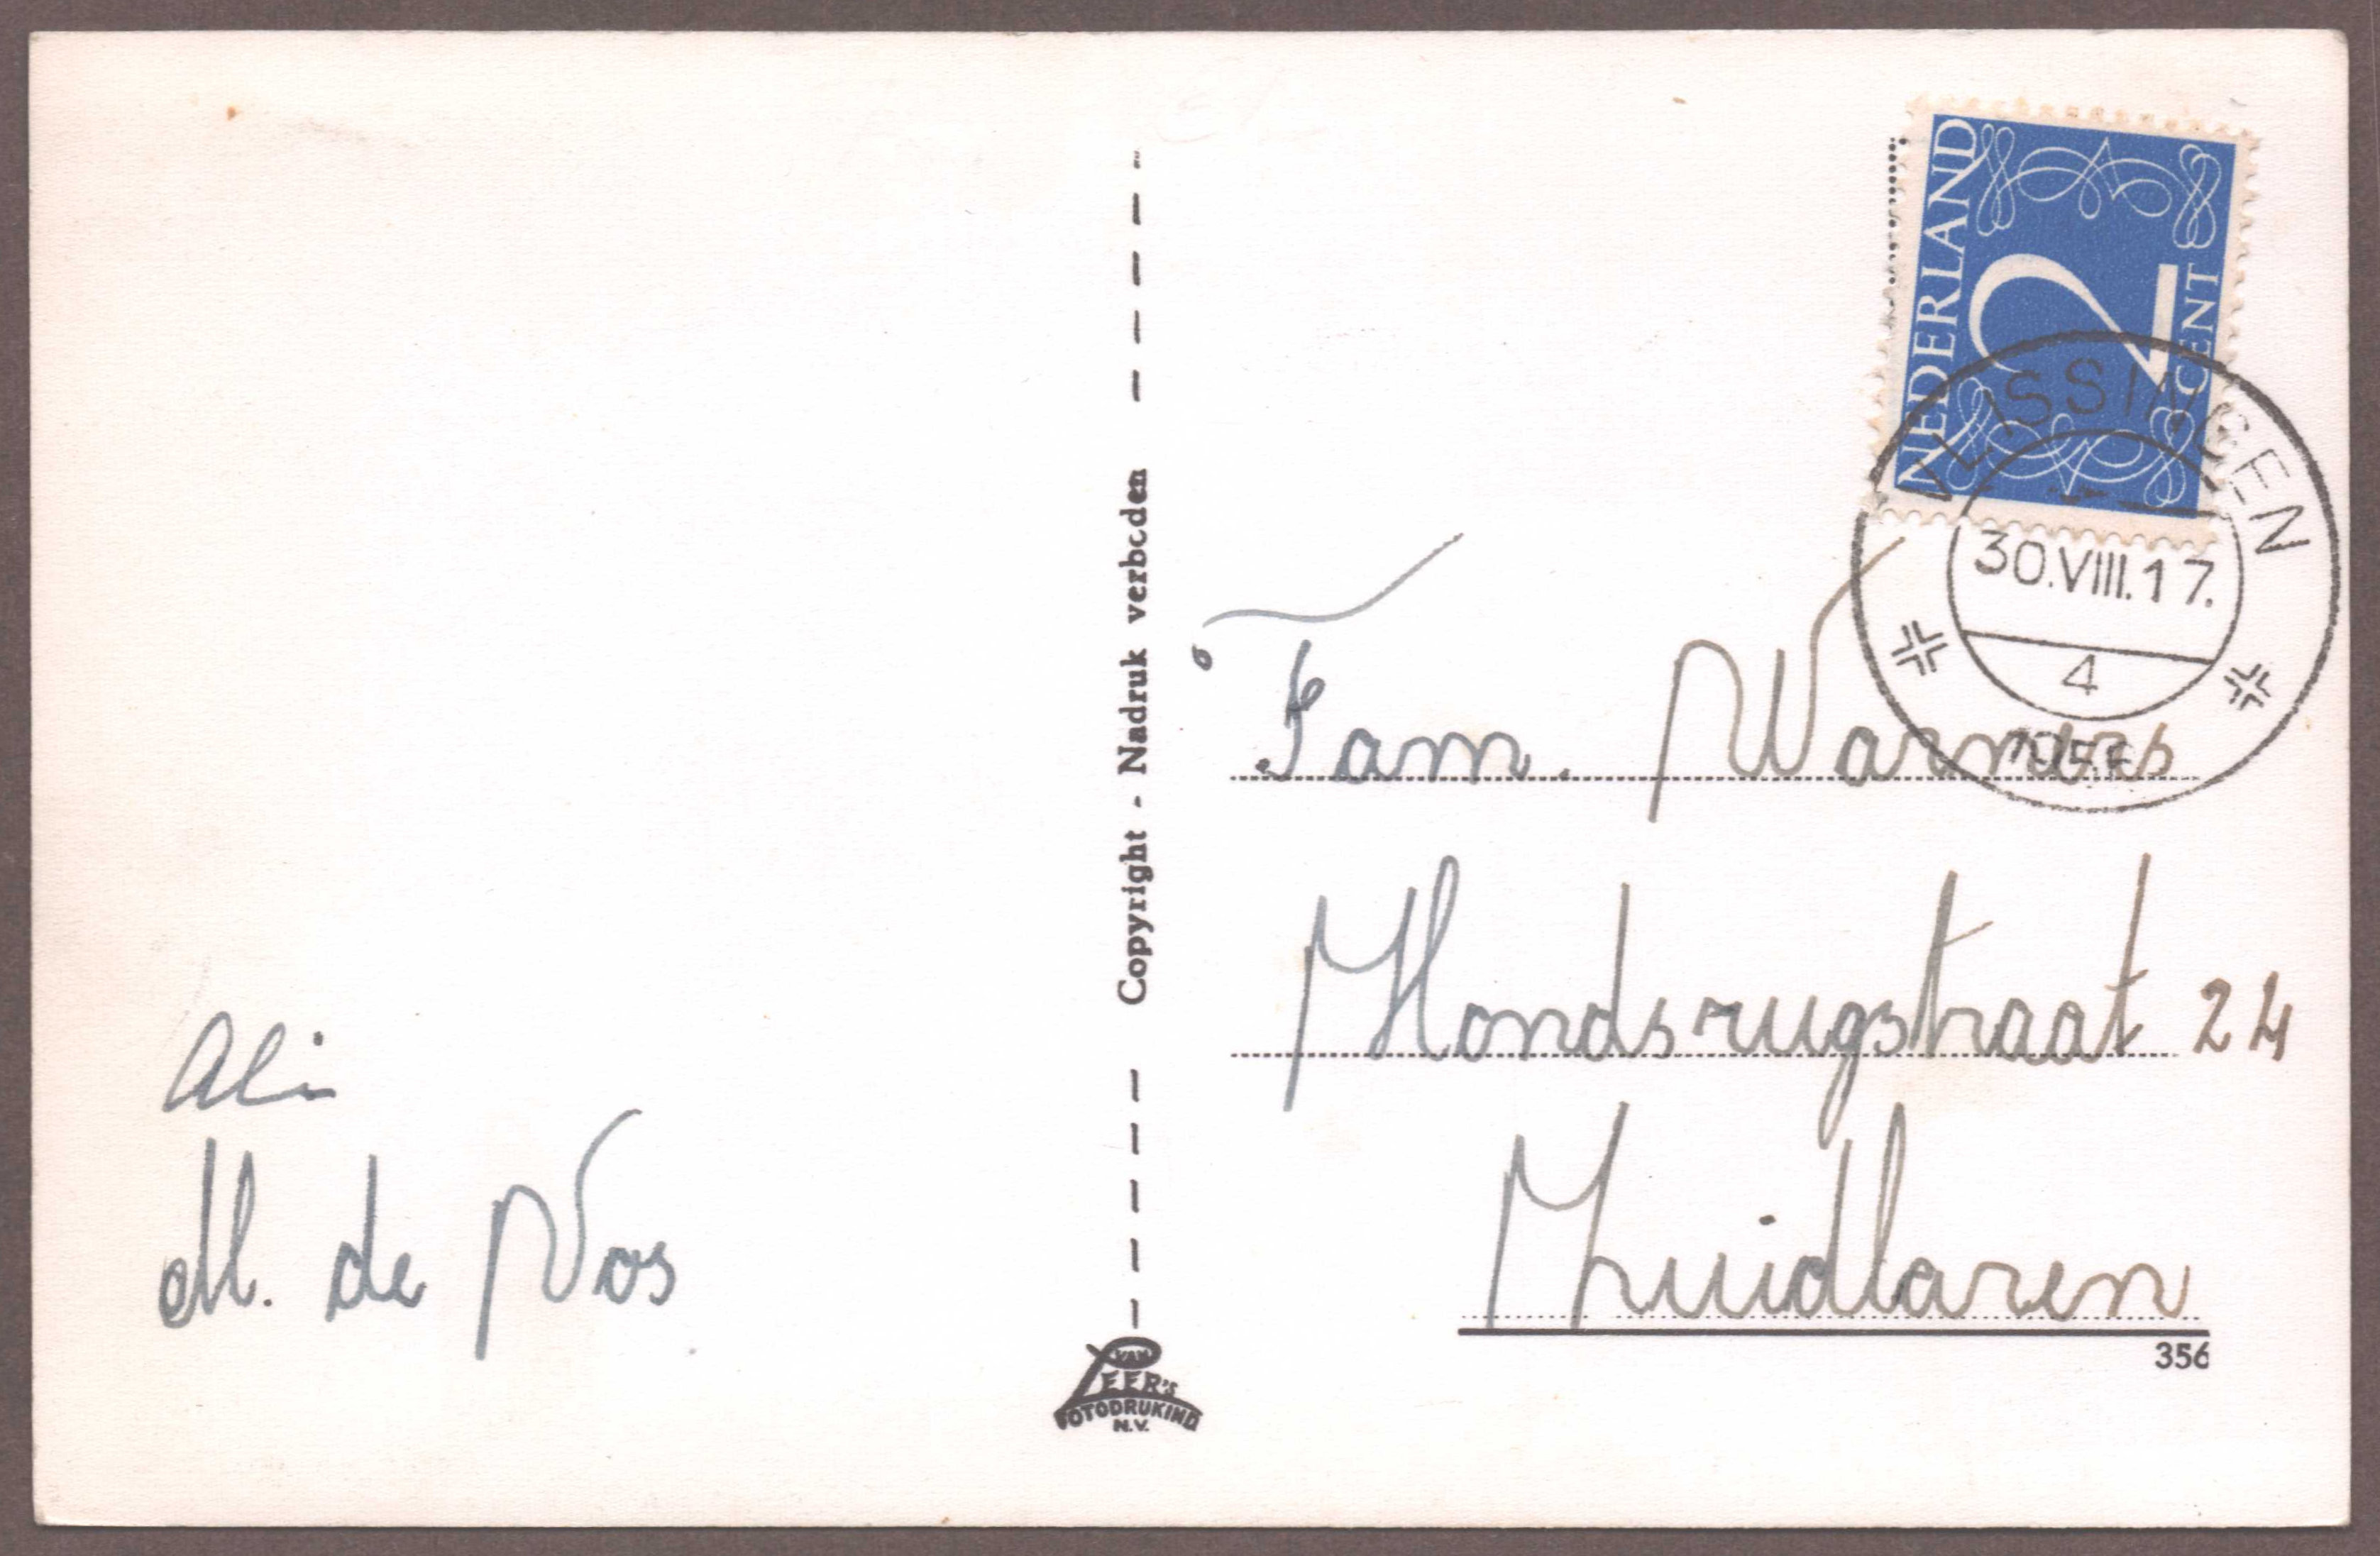 Ali
M. de Vos
Copyright - Nadruk verboden
VAN
LEER'S
FOTODRUKIND
N.V.
NEDERLAND
2
CENT
VLISSINGEN
30.VIII.17.
4
Fam. Warmers
Hondsrugstraat 24
Zuidlaren
356